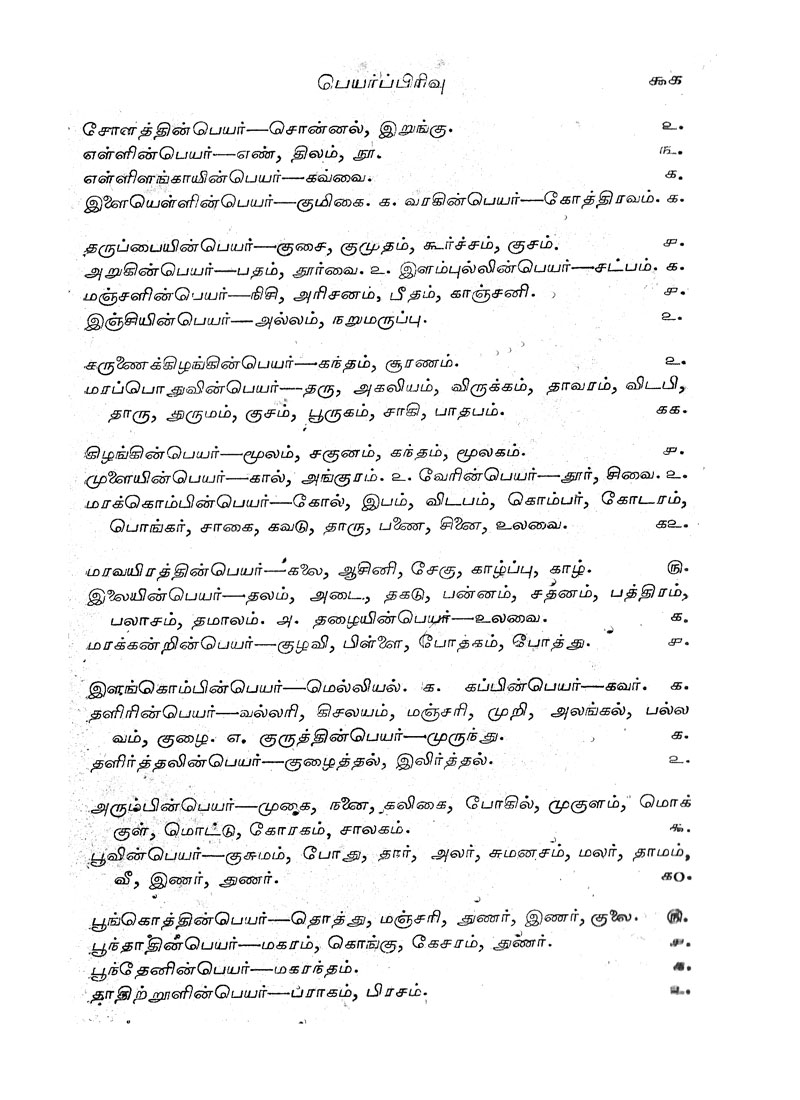 பெயர்ப்பிரிவு ௯௧
சோளத்தின்பெயர்—சொன்னல், இறுங்கு. ௨.
எள்ளின்பெயர்—எண், திலம், நூ. ௩.
எள்ளிளங்காயின்பெயர்—கவ்வை. ௧.
இளையெள்ளின்பெயர்—குமிகை. ௧. வரகின்பெயர்—கோத்திரவம். ௧.
தருப்பையின்பெயர்—குசை, குமுதம், கூர்ச்சம், குசம். ௪.
அறுகின்பெயர்—பதம், தூர்வை. ௨. இளம்புல்லின்பெயர்—சட்பம். ௧.
மஞ்சளின்பெயர்—நிசி, அரிசனம், பீதம், காஞ்சனி. ௪.
இஞ்சியின்பெயர்—அல்லம், நறுமருப்பு. ௨.
கருணைக்கிழங்கின்பெயர்—கந்தம், சூரணம். ௨.
மரப்பொதுவின்பெயர்—தரு, அகலியம், விருக்கம், தாவரம், விடபி,
தாரு, துருமம், குசம், பூருகம், சாகி, பாதபம். ௧௧.
கிழங்கின்பெயர்—மூலம், சகுனம், கந்தம், மூலகம். ௪.
முளையின்பெயர்—கால், அங்குரம். ௨. வேரின்பெயர்—தூர், சிவை. ௨.
மரக்கொம்பின்பெயர்—கோல், இபம், விடபம், கொம்பர், கோடரம்,
பொங்கர், சாகை, கவடு, தாரு, பணை, சினை, உலவை. ௧௨.
மரவயிரத்தின்பெயர்—கலை, ஆசினி, சேகு, காழ்ப்பு, காழ். ௫.
இலையின்பெயர்—தலம், அடை, தகடு, பன்னம், சதனம், பத்திரம்,
பலாசம், தமாலம். ௮. தழையின்பெயர்—உலவை. ௧.
மரக்கன்றின்பெயர்—குழவி, பிள்ளை, போதகம், போத்து. ௪.
இளங்கொம்பின்பெயர்—மெல்லியல். ௧. கப்பின்பெயர்—கவர். ௧.
தளிரின்பெயர்—வல்லரி, கிசலயம், மஞ்சரி, முறி, அலங்கல், பல்ல
வம், குழை. ௭. குருத்தின்பெயர்—முருந்து. ௧.
தளிர்த்தலின்பெயர்—குழைத்தல், இலிர்த்தல். ௨.
அரும்பின்பெயர்—முகை, நனை, கலிகை, போகில், முகுளம், மொக்
குள், மொட்டு, கோரகம், சாலகம். ௯.
பூவின்பெயர்—குசுமம், போது, தார், அலர், சுமனசம், மலர், தாமம்,
வீ, இணர், துணர். ௧௦.
பூங்கொத்தின்பெயர்—தொத்து, மஞ்சரி, துணர், இணர், குலை. ௫.
பூந்தாதின்பெயர்—மகரம், கொங்கு, கேசரம், துணர். ௪.
பூந்தேனின்பெயர்—மகரந்தம். ௧.
தாதிற்றூளின்பெயர்—ப்ராகம், பிரசம். ௨.